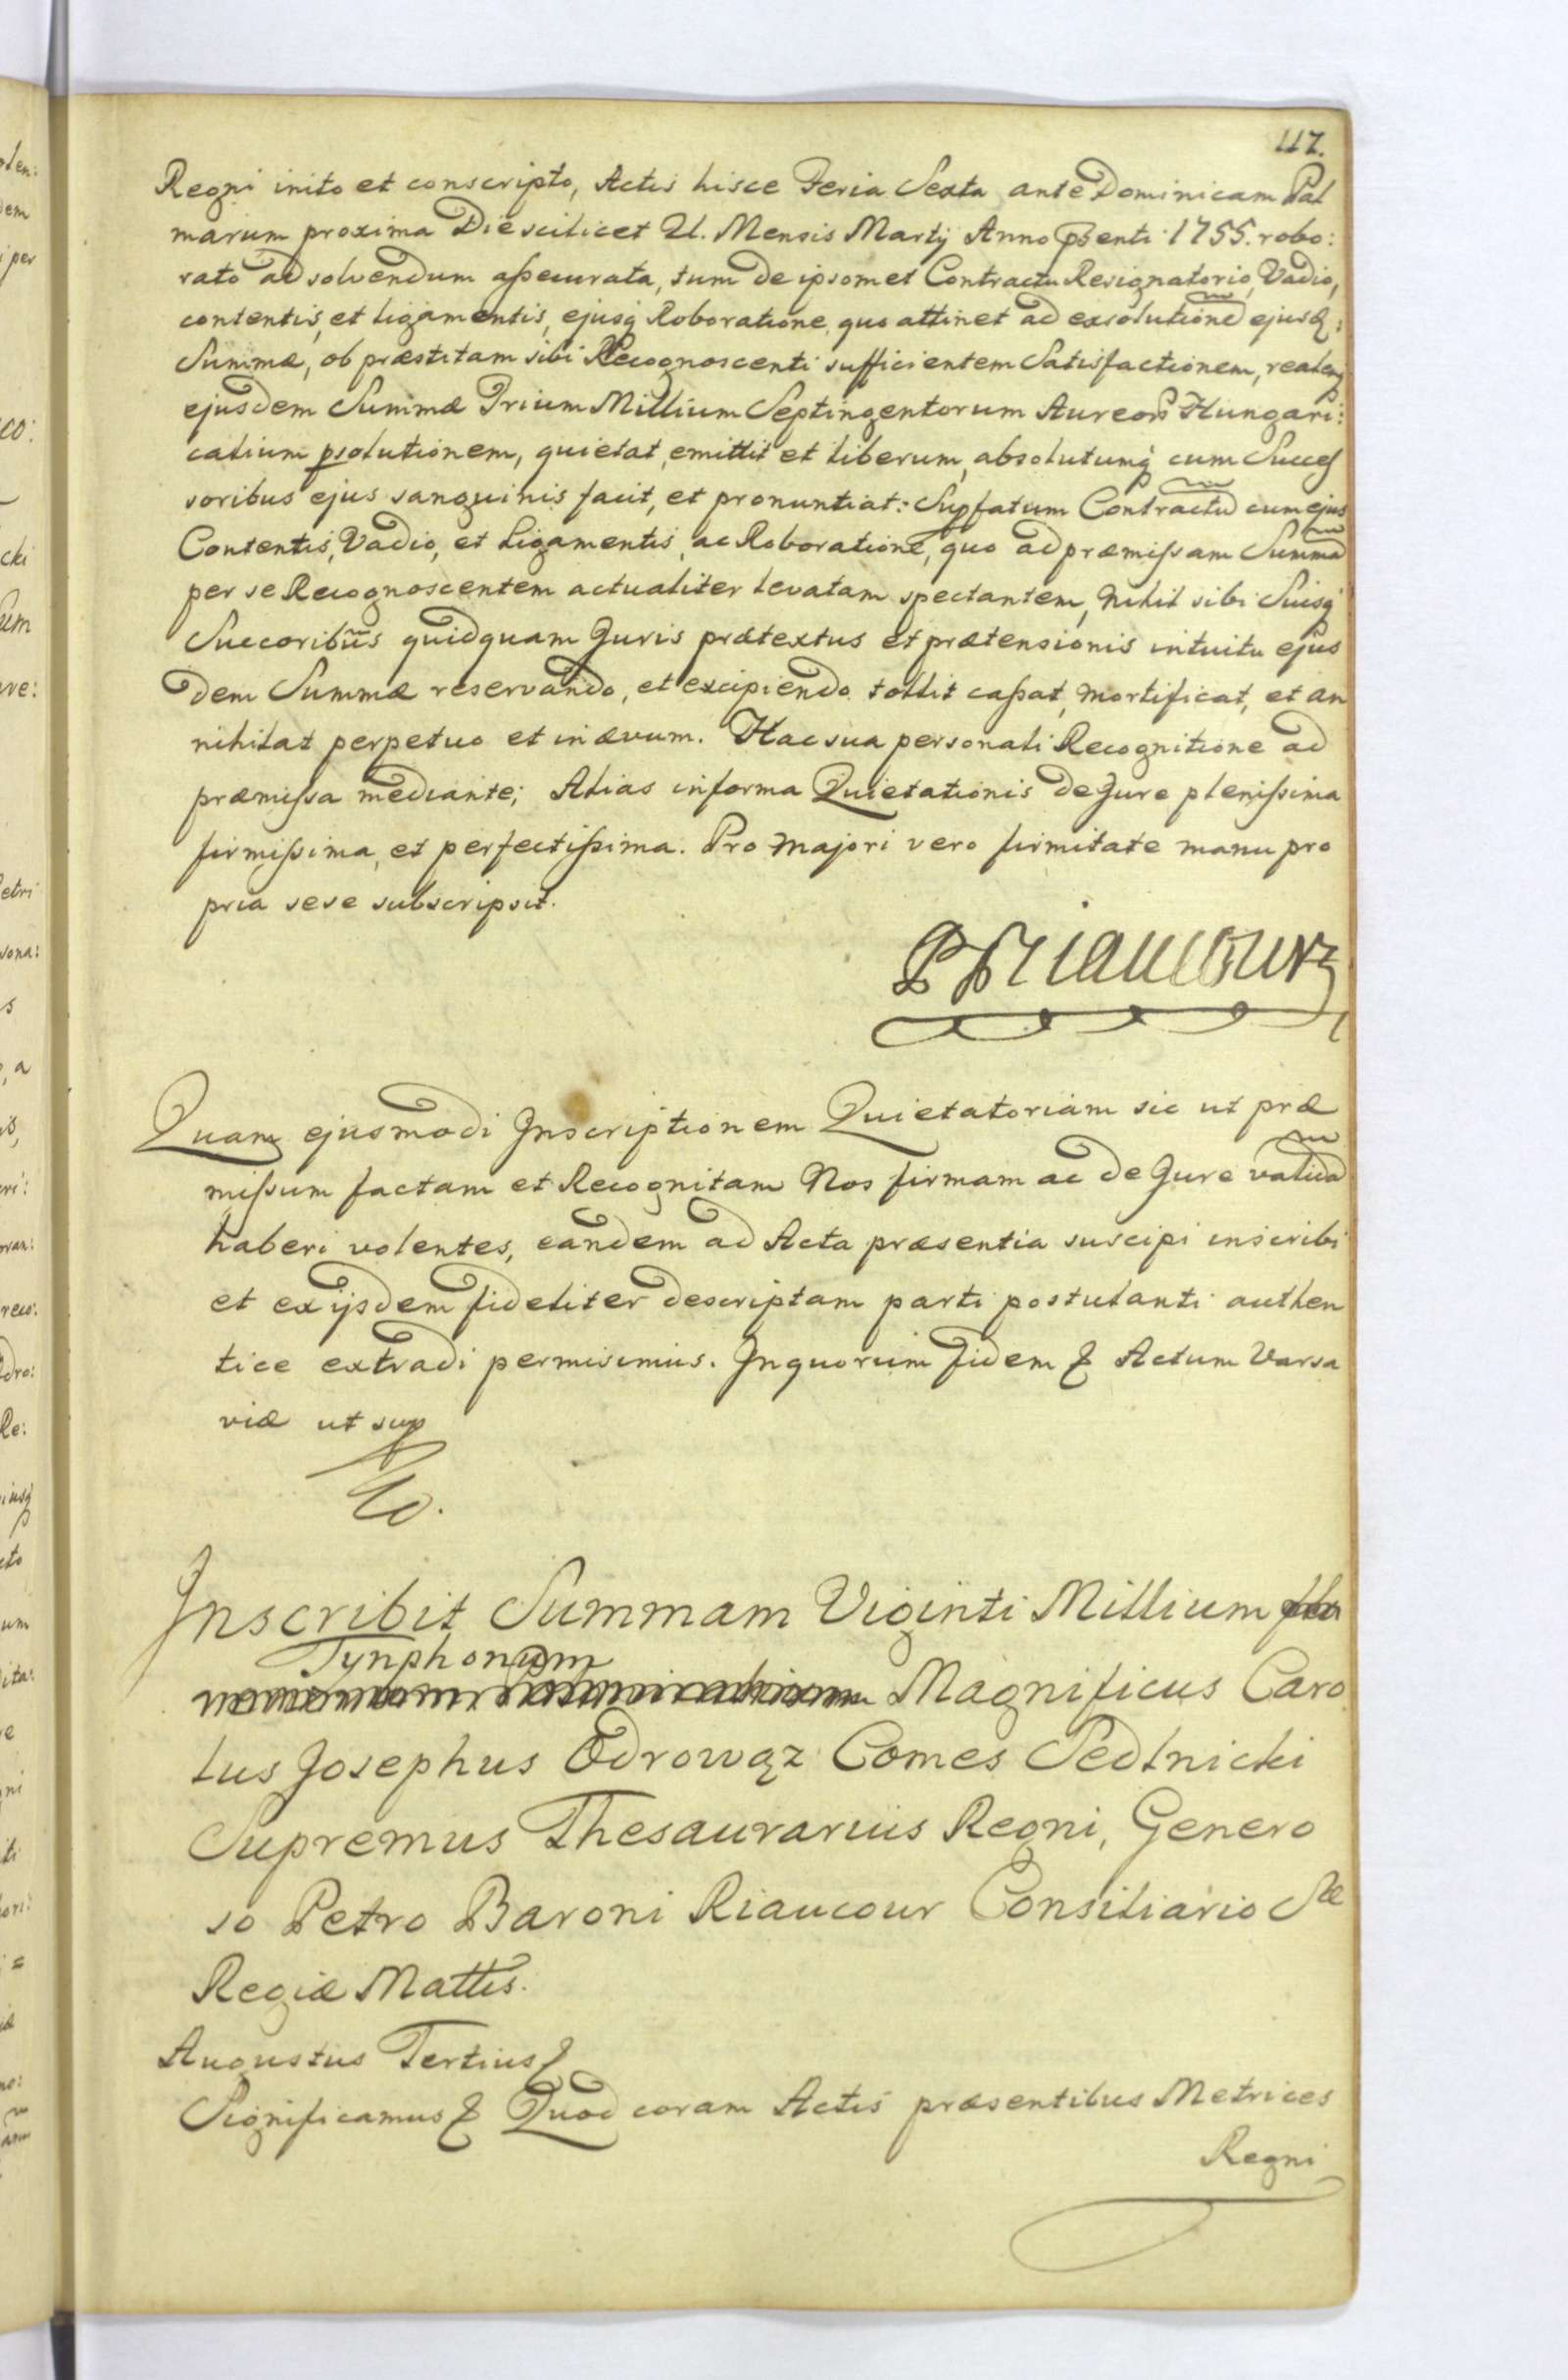 117.
Regni inito et conscripto, Actis hisce Feria Sexta ante Dominicam Pal
marum proxima Die scilicet 21. Mensis Martij Anno pnti 1755. robo:
rato ad solvendum assecurata, tum de ipsomet Contractu Resignatorio, Vadio,
contentis, et ligamentis, ejusq Roboratione, quo attinet ad exsolutione ejusd:
Summæ, ob præstitam sibi Recognoscenti sufficientem Satisfactionem, realemq
ejusdem Summæ Trium Millium Septingentorum Aureor Hungari:
calium psolutionem, quietat, emittit et liberum, absolutumq cum Succes
soribus ejus sanguinis facit, et pronuntiat: Supfatum Contractu cum ejus
Contentis, Vadio, et Ligamentis, ac Roboratione, quo ad præmissam Summa
per se Recognoscentem actualiter levatam spectantem, Nihil sibi Suisq
Succoribus quidquam Juris prætextus et prætensionis intuitu ejus
dem Summæ reservando, et excipiendo tollit cassat, mortificat, et an
nihilat perpetuo et in ævum. Hac sua personali Recognitione ad
præmissa mediante; Alias in forma Quietationis de Jure plenissima
firmissima, et perfectissima. Pro majori vero firmitate manu pro
pria sese subscripsit.
P Riaucourz
Quam ejusmodi Inscriptionem Quietatoriam sic ut præ
missum factam et Recognitam Nos firmam ac de Jure valida
haberi volentes, eandem ad Acta præsentia suscipi inscribi
et ex ijsdem fideliter descriptam parti postulanti authen
tice extradi permisimus. In quorum fidem & Actum Varsa
viæ ut sup
Inscribit Summam Viginti Millium
Tynphonum
Magnificus Caro
lus Josephus Odrowąz Comes Sedlnicki
Supremus Thesaurarius Regni, Genero
so Petro Baroni Riaucour Consiliario Sæ
Regiæ Mattis.
Augustus Tertius &
Significamus & Quod coram Actis præsentibus Metrices
Regni